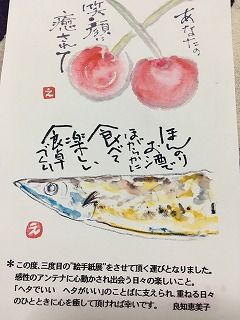 あなたの
笑顔に
癒されて
え
ほんのり
お酒で
ほがらかに
食べて
楽しい
食卓
え
＊この度、三度目の"絵手紙展"をさせて頂く運びとなりました。
感性のアンテナに心動かされ出会う日々の楽しいこと。
「ヘタでいい　ヘタがいい」のことばに支えられ、重ねる日々
のひとときに心を癒して頂ければ幸いです。　良知恵美子